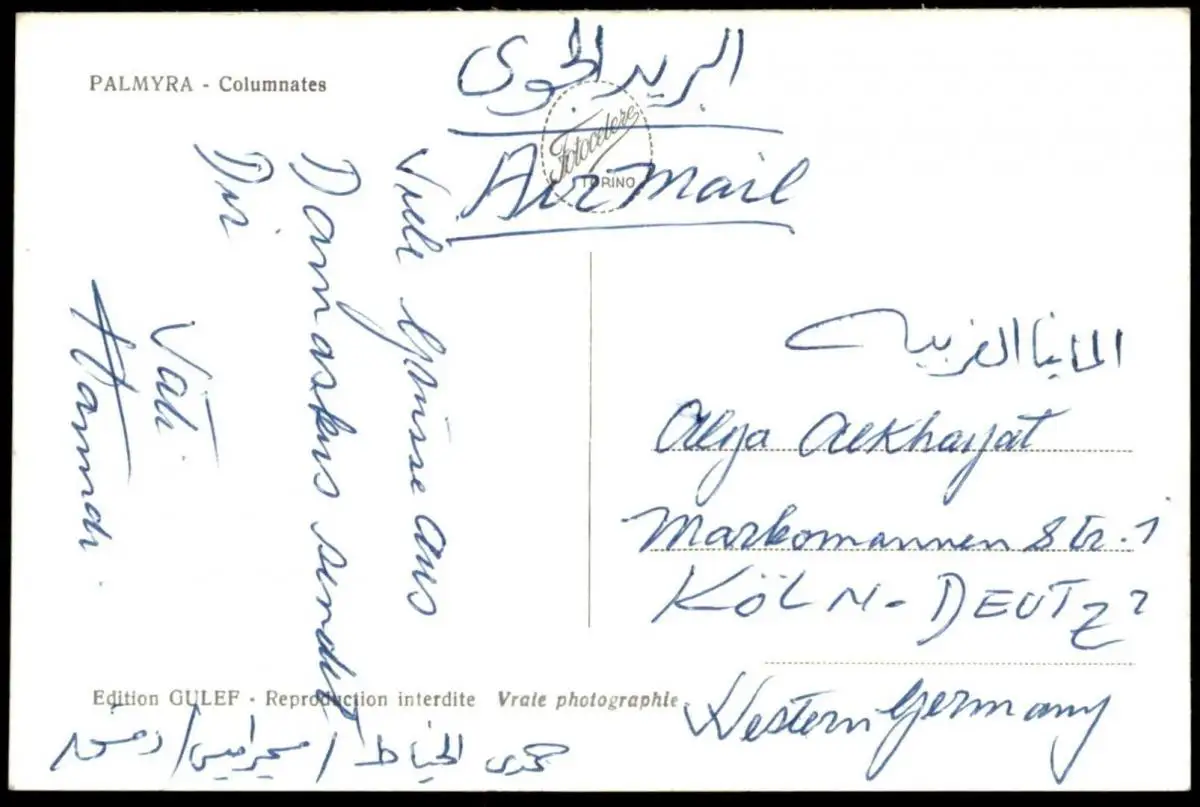 PALMYRA - Columnates
البريد الجوي
Fotocelere
TORINO
Air Mail
Viele Grüsse aus
Damaskus sendet
Dir
Vati
Hamdi
المانيا الغربية
Alya Alkhayat
Markomannen Str. 1
KÖLN - DEUTZ
Western Germany
Edition GULEF - Reproduction interdite Vraie photographie
حمدي الخياط / / دمشق